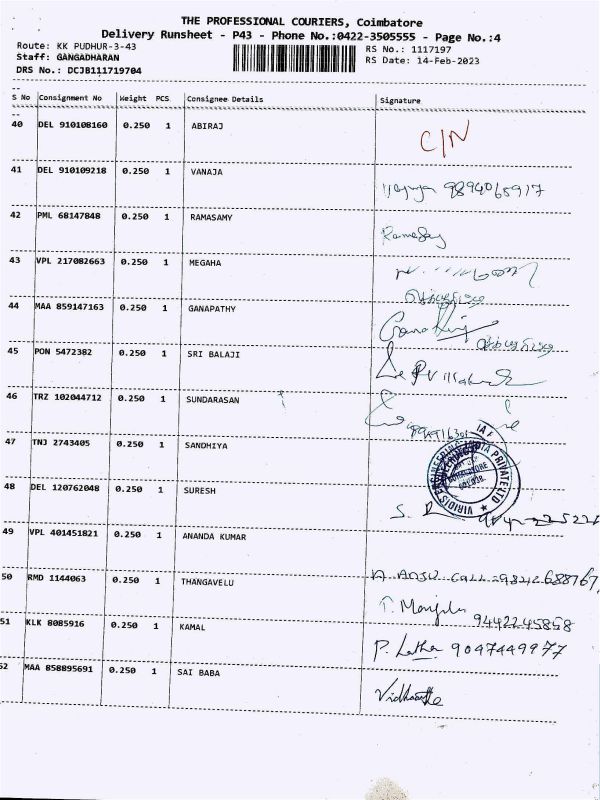 THE PROFESSIONAL COURIERS, Coimbatore
Delivery Runsheet - P43 - Phone No.:0422-3505555 - Page No.:4
Route: KK PUDHUR-3-43
RS No.: 1117197
Staff: GANGADHARAN
RS Date: 14-Feb-2023
DRS No.: DCJB111719704
S No Consignment No Weight PCS Consignee Details Signature
40 DEL 910108160 0.250 1 ABIRAJ C/N
41 DEL 910109218 0.250 1 VANAJA 9894065917
42 PML 68147848 0.250 1 RAMASAMY
43 VPL 217082663 0.250 1 MEGAHA
44 MAA 859147163 0.250 1 GANAPATHY
45 PON 5472382 0.250 1 SRI BALAJI
46 TRZ 102044712 0.250 1 SUNDARASAN
47 TNJ 2743405 0.250 1 SANDHIYA
VIRIDIS ENGINEERING INDIA PRIVATE LTD
48 DEL 120762048 0.250 1 SURESH
49 VPL 401451821 0.250 1 ANANDA KUMAR
50 RMD 1144063 0.250 1 THANGAVELU
9442245858
51 KLK 8085916 0.250 1 KAMAL P. Latha 9047449977
52 MAA 858895691 0.250 1 SAI BABA